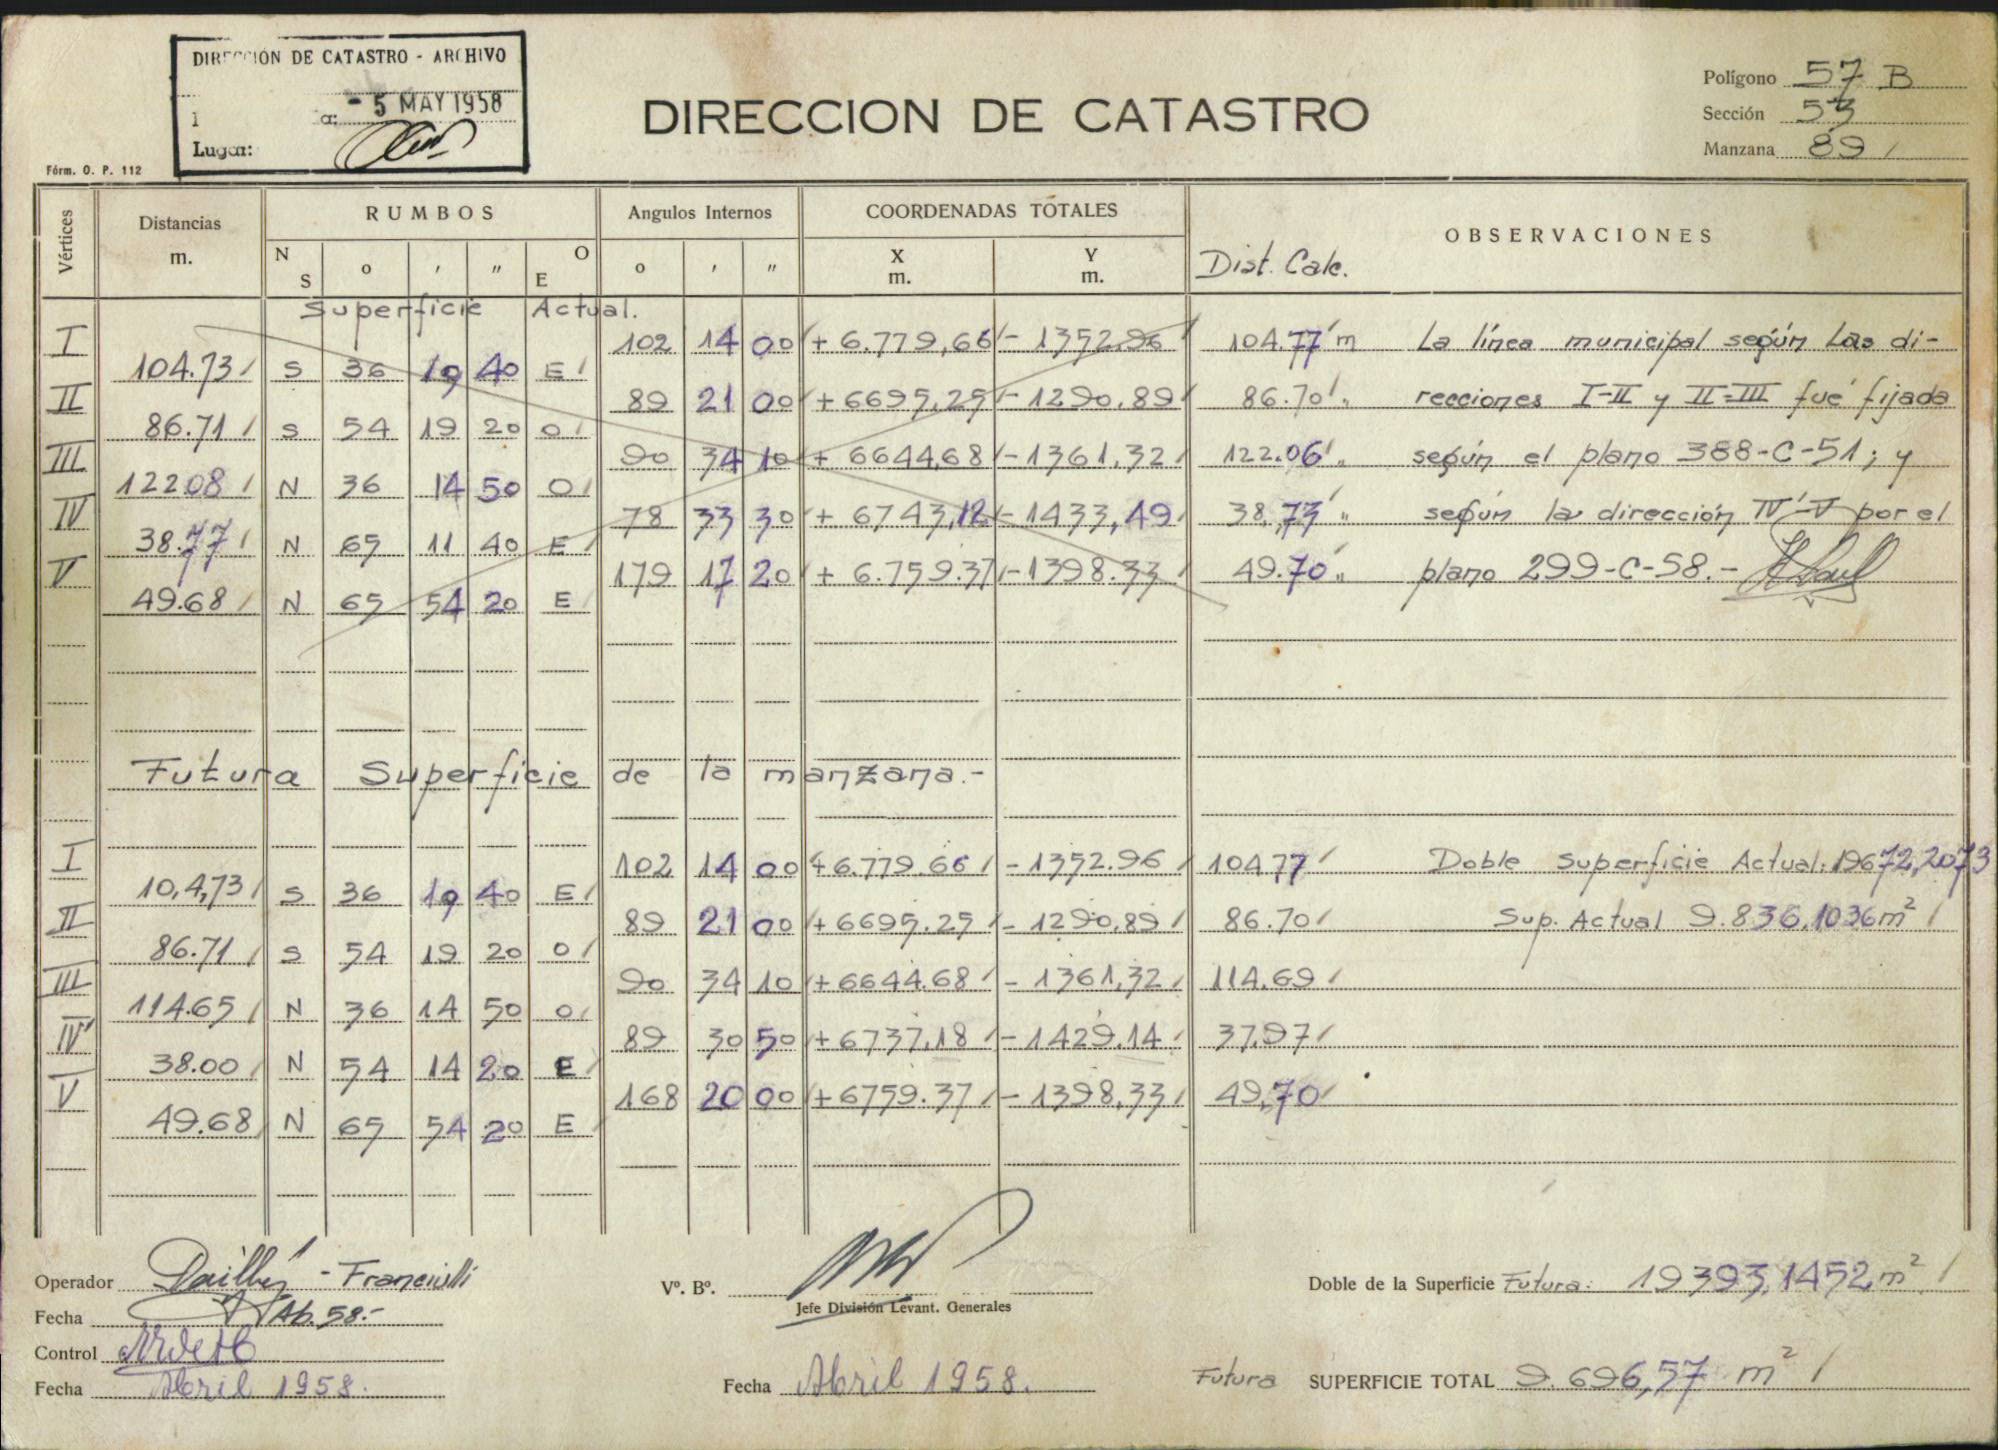 DIRECCIÓN DE CATASTRO - ARCHIVO
- 5 MAY 1958
Lugar:
DIRECCION DE CATASTRO
Polígono 57 B
Sección 53
Manzana 89
Fórm. O. P. 112
Vértices Distancias m. RUMBOS Angulos Internos COORDENADAS TOTALES OBSERVACIONES
N S o , ,, O E o , ,, X m. Y m. Dist. Calc.
Superficie Actual.
I 102 14 00 + 6.779,66 - 1352.96 104.77 m La línea municipal según Las di-
104.73 S 36 19 40 E
II 89 21 00 + 6695,25 - 1290,89 86.70 " recciones I-II y II-III fué fijada
86.71 S 54 19 20 O
III 90 34 10 + 6644,68 - 1361,32 122.06 " según el plano 388-C-51; y
122.08 N 36 14 50 O
IV 78 33 30 + 6743,12 - 1433,49 38,73 " según la dirección IV'-V por el
38.77 N 65 11 40 E
V 179 17 20 + 6.759.37 - 1398.33 49.70 " plano 299-C-58.-
49.68 N 65 54 20 E
Futura Superficie de la manzana.-
I 102 14 00 + 6.779.66 - 1352.96 104.77 Doble superficie Actual: 19672,2073
10,4,73 S 36 19 40 E
II 89 21 00 + 6695.25 - 1290,89 86.70 Sup. Actual 9.836,1036 m²
86.71 S 54 19 20 O
III 90 34 10 + 6644.68 - 1361,32 114.69
114.65 N 36 14 50 O
IV' 89 30 50 + 6737,18 - 1429.14 37.97
38.00 N 54 14 20 E
V 168 20 00 + 6759.37 - 1398,33 49,70
49.68 N 65 54 20 E
Operador - Franciulli
Fecha Ab. 58.-
Control
Fecha Abril 1958.
Vº. Bº.
Jefe División Levant. Generales
Fecha Abril 1958.
Doble de la Superficie Futura: 19393,1452 m²
Futura SUPERFICIE TOTAL 9.696,57 m²